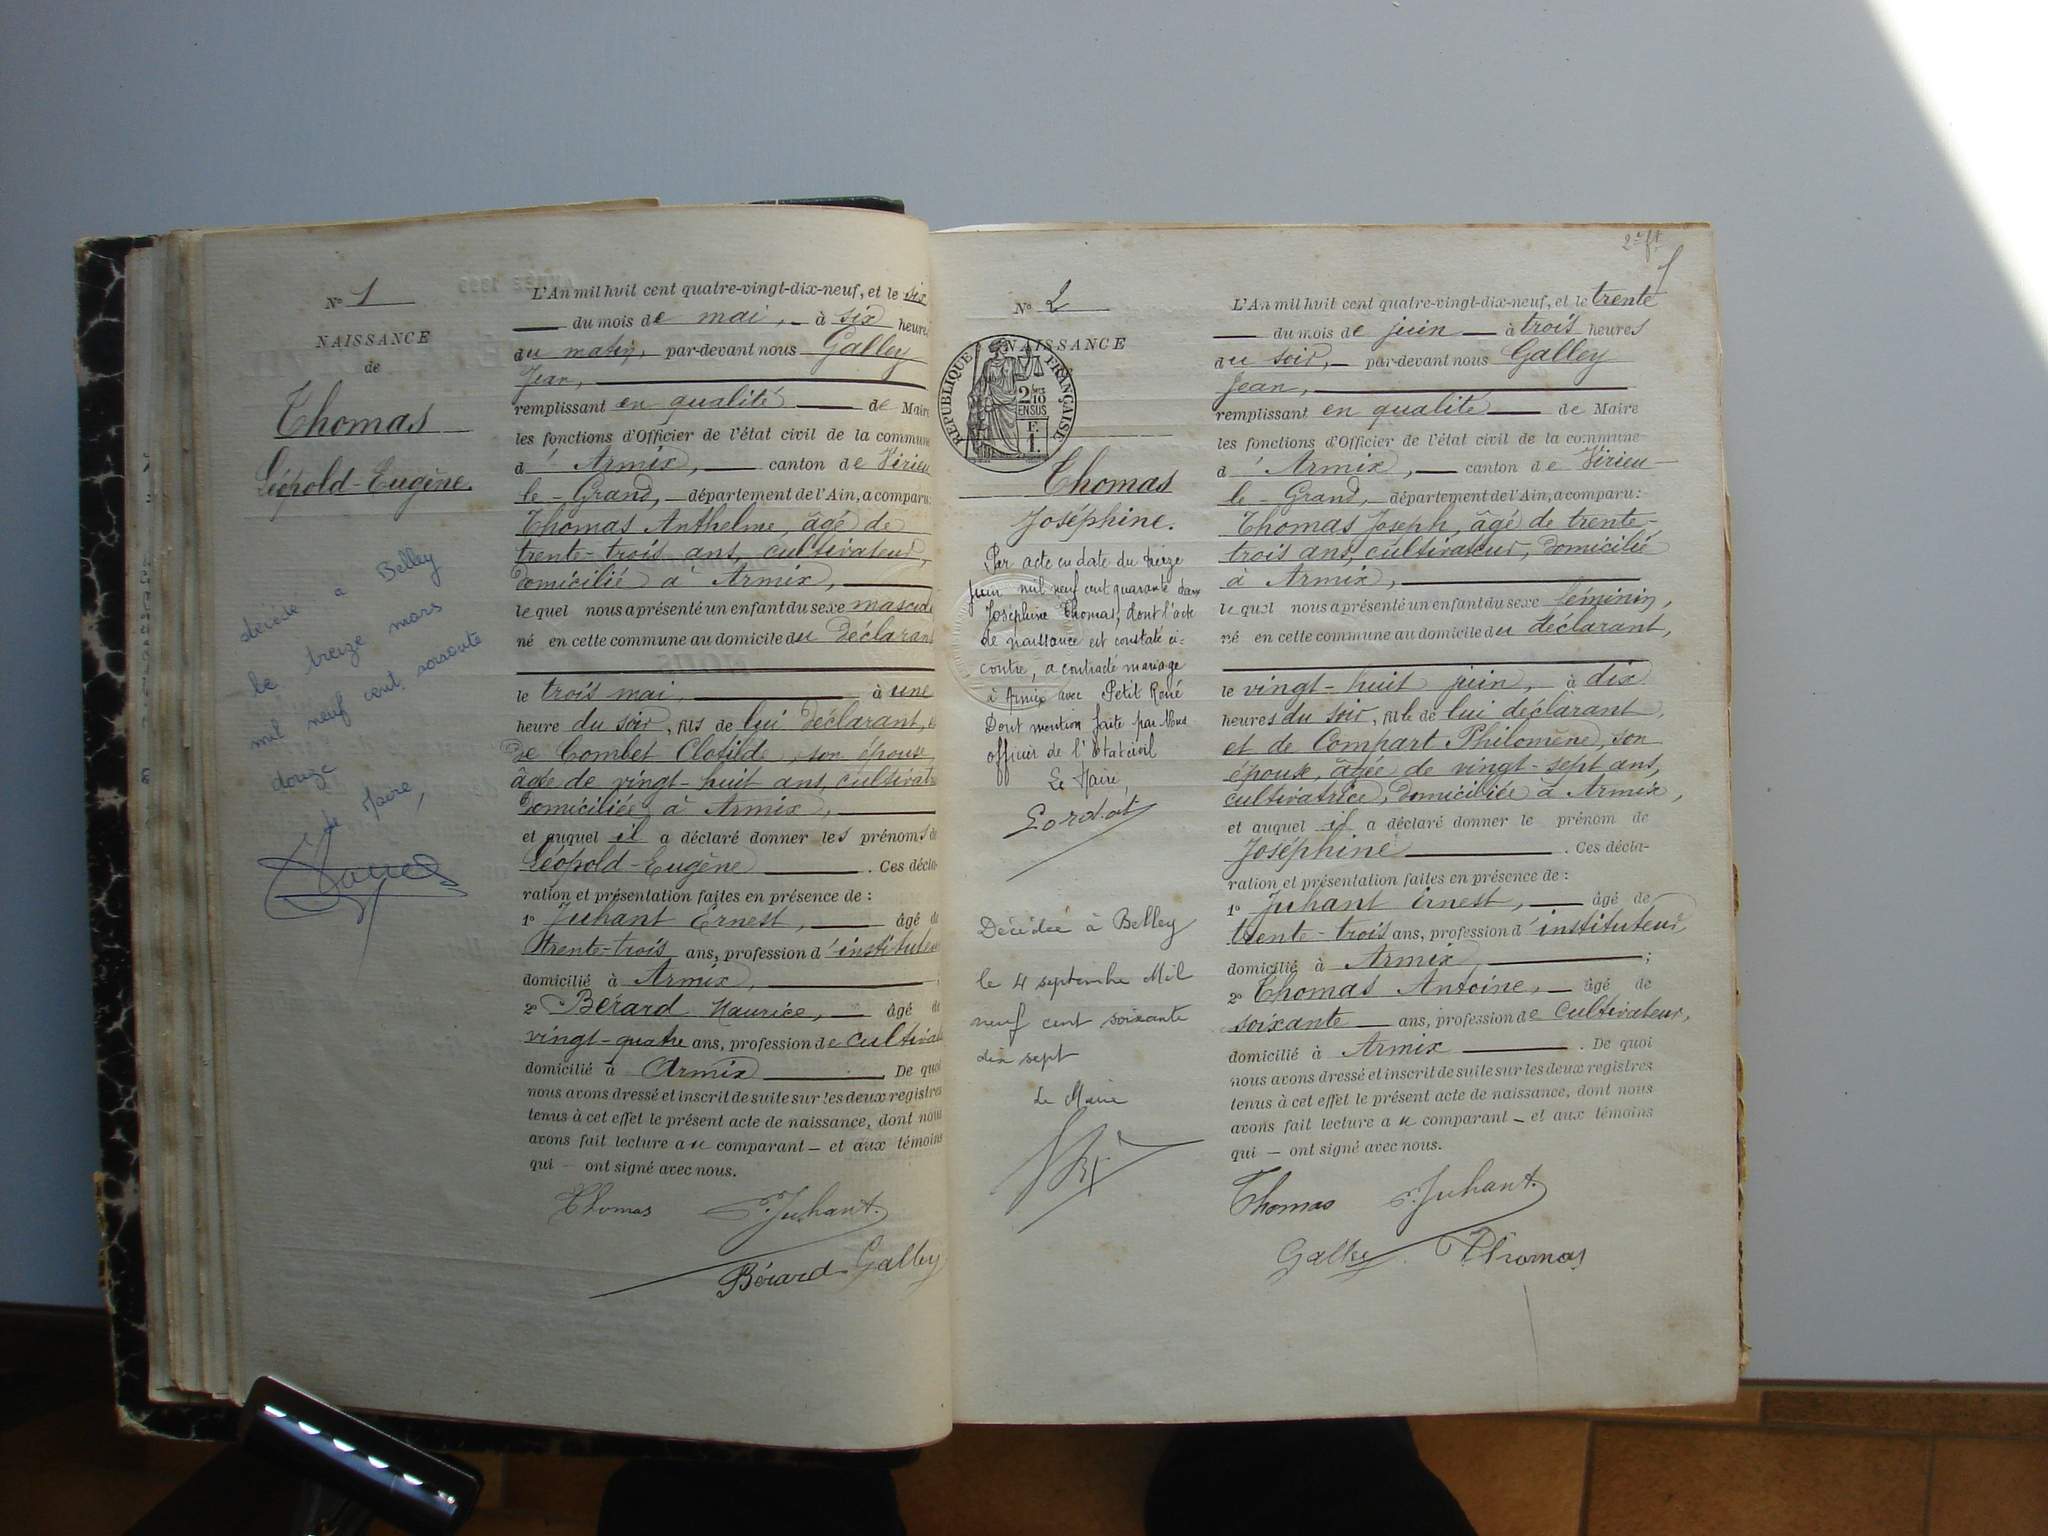 N° 1
NAISSANCE
de
Thomas
Léopold-Eugène.
décédé à Belley
le treize mars
mil neuf cent soixante
douze
Le Maire,
L'An mil huit cent quatre-vingt-dix-neuf, et le six
du mois de mai, à six heures
du matin, par-devant nous Galley
Jean,
remplissant en qualité de Maire
les fonctions d'Officier de l'état civil de la commune
d'Armix, canton de Virieu
le-Grand, département de l'Ain, a comparu:
Thomas Anthelme, âgé de
trente-trois ans, cultivateur,
domicilié à Armix,
le quel nous a présenté un enfant du sexe masculi
né en cette commune au domicile du déclarant
le trois mai à une
heure du soir, fils de lui déclarant, e
de Combet Clotilde, son épouse
âgée de vingt-huit ans, cultivatr
domiciliée à Armix,
et auquel il a déclaré donner les prénoms de
Léopold-Eugène. Ces décla-
ration et présentation faites en présence de :
1° Juhant Ernest, âgé de
trente-trois ans, profession d'instituteu
domicilié à Armix,
2° Bérard Maurice, âgé de
vingt-quatre ans, profession de cultivat
domicilié à Armix De quoi
nous avons dressé et inscrit de suite sur les deux registres
tenus à cet effet le présent acte de naissance, dont nous
avons fait lecture au comparant — et aux témoins
qui — ont signé avec nous.
Thomas Juhant
Bérard Galley
2e ft
1
N° 2
NAISSANCE
REPUBLIQUE FRANÇAISE
2/10
EN SUS
F.
1.
Thomas
Joséphine.
Par acte en date du treize
juin mil neuf cent quarante deux
Joséphine Thomas, dont l'acte
de naissance est constaté ci-
contre, a contracté mariage
à Armix avec Petit René
Dont mention faite par Nous
officier de l'Etat civil
Le Maire,
Décédée à Belley
le 4 septembre Mil
neuf cent soixante
dix sept
Le Maire
L'An mil huit cent quatre-vingt-dix-neuf, et le trente
du mois de juin à trois heures
du soir, par-devant nous Galley
Jean,
remplissant en qualité de Maire
les fonctions d'Officier de l'état civil de la commune
d'Armix, canton de Virieu-
le-Grand, département de l'Ain, a comparu:
Thomas Joseph, âgé de trente-
trois ans, cultivateur, domicilié
à Armix,
le quel nous a présenté un enfant du sexe féminin,
né en cette commune au domicile du déclarant,
le vingt-huit juin, à dix
heures du soir, fille de lui déclarant
et de Compart Philomène, son
épouse, âgée de vingt-sept ans,
cultivatrice, domiciliée à Armix,
et auquel il a déclaré donner le prénom de
Joséphine. Ces décla-
ration et présentation faites en présence de :
1° Juhant Ernest, âgé de
trente-trois ans, profession d'instituteur,
domicilié à Armix ;
2° Thomas Antoine, âgé de
soixante ans, profession de cultivateur,
domicilié à Armix. De quoi
nous avons dressé et inscrit de suite sur les deux registres
tenus à cet effet le présent acte de naissance, dont nous
avons fait lecture au comparant — et aux témoins
qui — ont signé avec nous.
Thomas Juhant
Galley Thomas